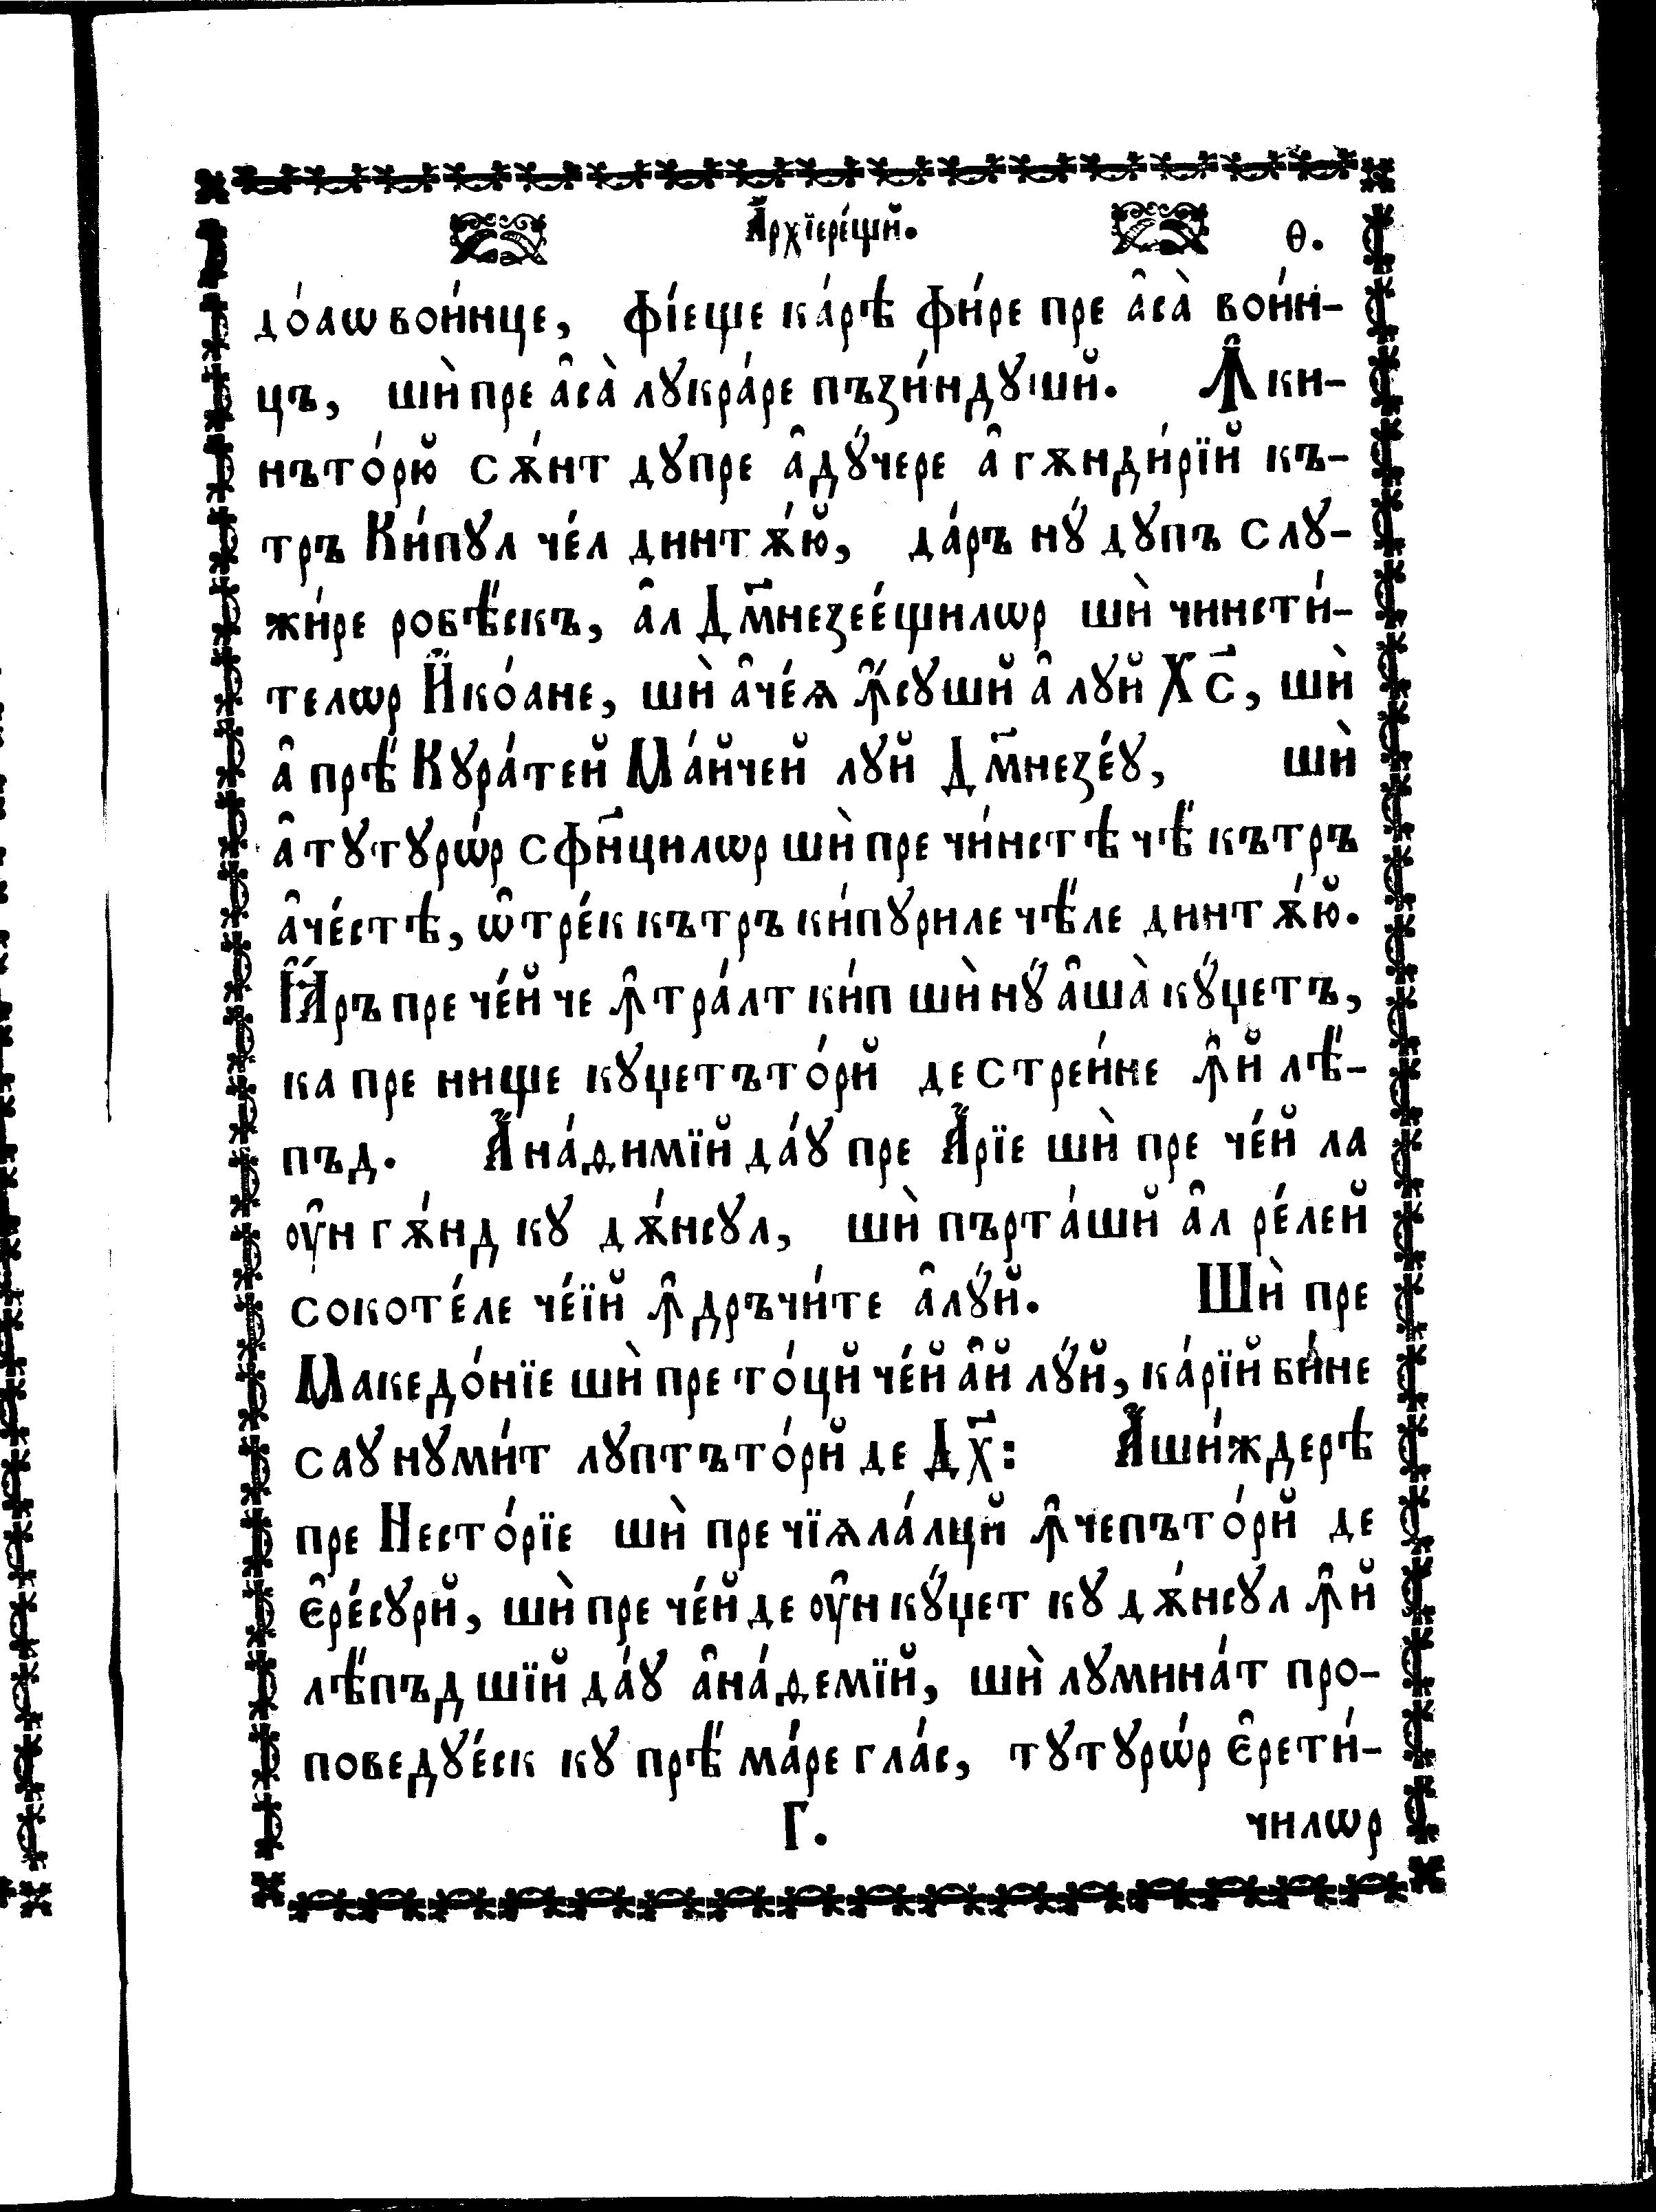 А҆рхїере́щй. Ѳ.
до́аѡ вои́нце, фі́еще ка́рѣ фи́ре пре а҆са̀ вои́н-
цъ, шѝ пре а҆са̀ лꙋкра́ре пъзи́ндꙋшй. Ꙟ ки-
нъто́рю̆ сѫ́нт дꙋпре а҆дꙋ́чере а҆ гѫнди́рїй къ-
тръ Ки́пꙋл че́л динтѫ́ю̆, да́ръ нꙋ́ дꙋпъ слꙋ-
жи́ре робѣ́скъ, а҆л Дм҃незее́щилѡр шѝ чинсти́-
телѡр И҆ко́ане, шѝ а҆че́ѧ ꙟ҆́сꙋшй а҆ лꙋй Хс҃, шѝ
а҆ прѣ́ Кꙋра́тей Ма́йчей лꙋй Дм҃незе́ꙋ, шѝ
а҆ тꙋтꙋрѡ́р сфн҃цилѡр шѝ пре чи́нстѣ чѣ́ кътръ
а҆че́стѣ, ѡ҆тре́к кътръ ки́пꙋриле чѣ́ле динтѫ́ю̆.
Ꙗ҆́ръ пре че́й че ꙟ҆тра́лт ки́п шѝ нꙋ́ а҆ша̀ кꙋ́џетъ,
ка пре нище кꙋџетъто́рй де стреи́не ꙟ҆й лѣ́-
пъд. А҆на́ѳимїй да́ꙋ пре А҆́рїе шѝ пре че́й ла
ᲂу҆н гѫ́нд кꙋ дѫ́нсꙋл, шѝ пърта́шй а҆л ре́лей
сокоте́ле че́їй ꙟ҆дръчи́те а҆лꙋ́й. Шѝ пре
Македо́нїе шѝ пре то́цй че́й а҆й лꙋ́й, ка́рїй би́не
саꙋ нꙋми́т лꙋптъто́рй де Дх҃: А҆ши́ждерѣ
пре Несто́рїе шѝ пре чїѧла́лцй ꙟ҆чепъто́рй де
є҆ре́сꙋрй, шѝ пре че́й де ᲂу҆н кꙋ́џет кꙋ дѫ́нсꙋл ꙟ҆й
лѣ́пъд шїй да́ꙋ а҆на́ѳемїй, шѝ лꙋмина́т про-
поведꙋе́ск кꙋ прѣ́ ма́ре гла́с, тꙋтꙋрѡ́р є҆рети́-
Г. чилѡр